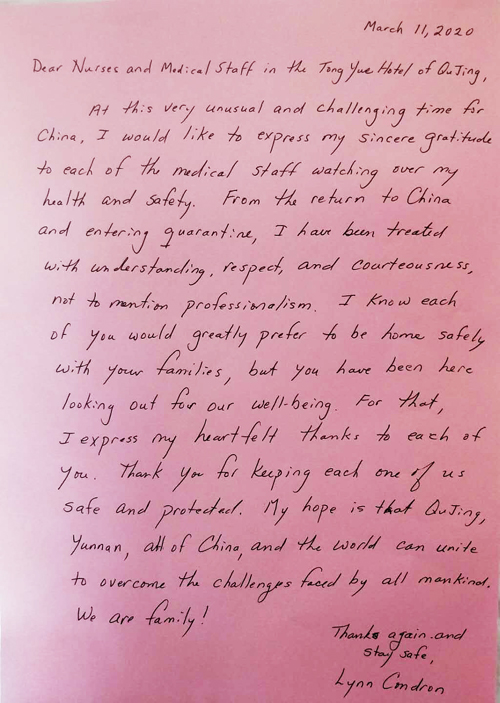 March 11, 2020
Dear Nurses and Medical Staff in the Tong Yue Hotel of QuJing,
At this very unusual and challenging time for
China, I would like to express my sincere gratitude
to each of the medical staff watching over my
health and safety. From the return to China
and entering quarantine, I have been treated
with understanding, respect, and courteousness,
not to mention professionalism. I know each
of you would greatly prefer to be home safely
with your families, but you have been here
looking out for our well-being. For that,
I express my heartfelt thanks to each of
you. Thank you for keeping each one of us
safe and protected. My hope is that QuJing,
Yunnan, all of China, and the world can unite
to overcome the challenges faced by all mankind.
We are family!
Thanks again and
stay safe,
Lynn Condron